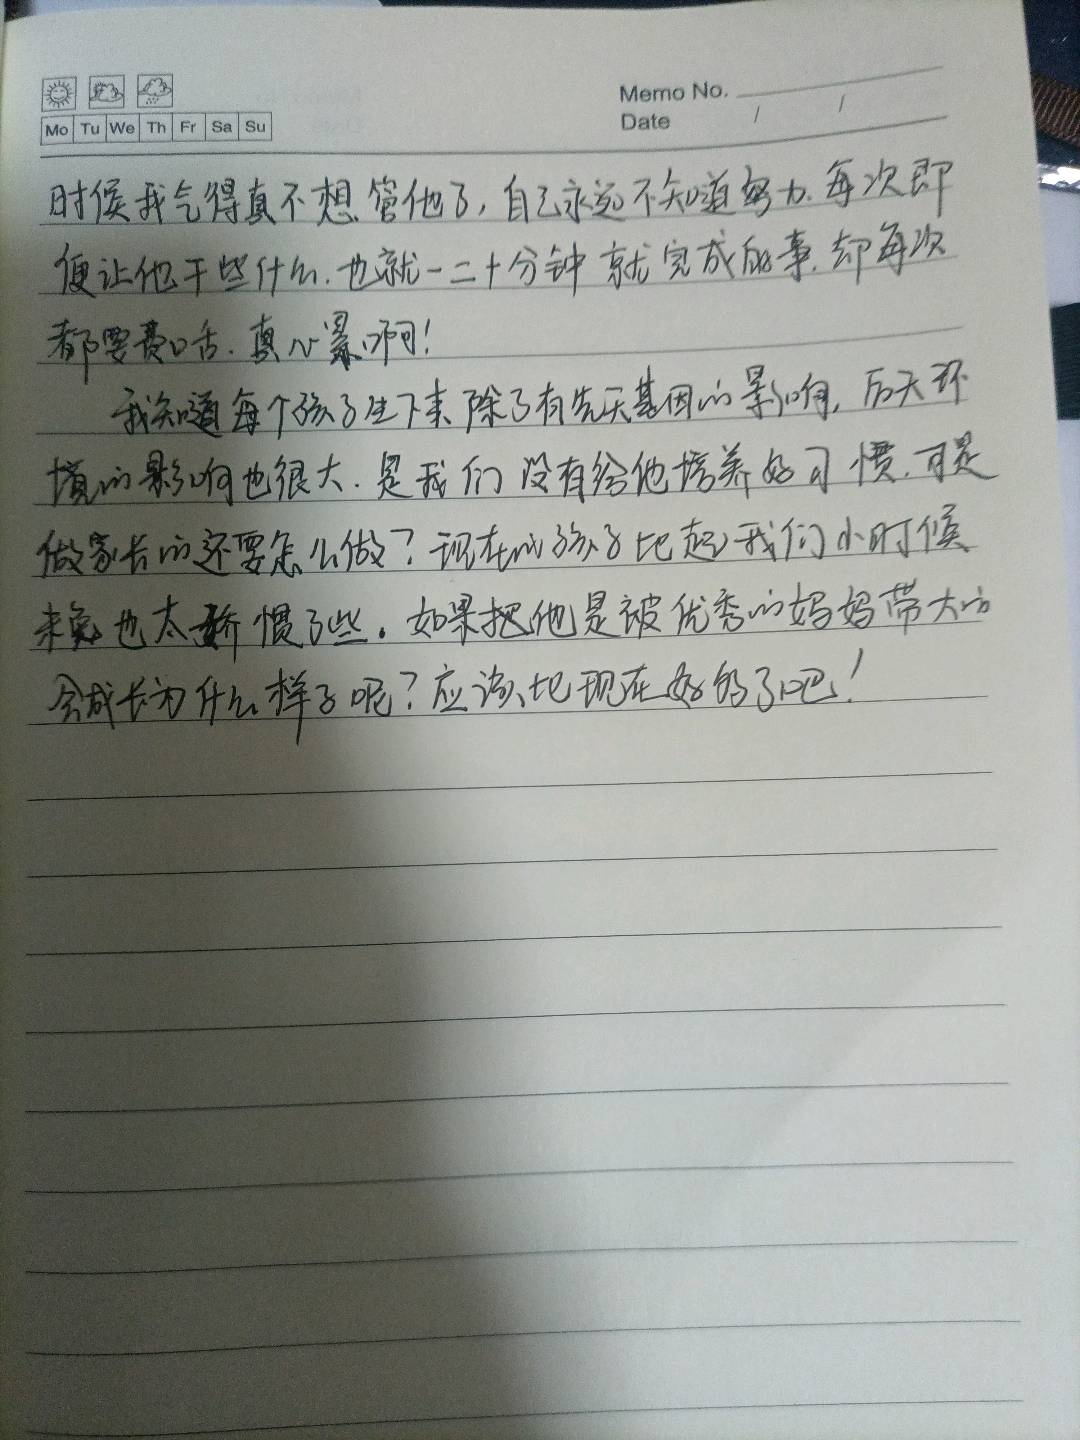 Memo No.
Mo Tu We Th Fr Sa Su
Date / /
时候我气得真不想管他了,自己永远不知道努力.每次即
便让他干些什么.也就一二十分钟就完成的事.却每次
都要费口舌.真心累啊!
我知道每个孩子生下来除了有先天基因的影响,后天环
境的影响也很大.是我们没有给他培养好习惯.可是
做家长的还要怎么做?现在的孩子比起我们小时候
未免也太娇惯了些.如果把他是被优秀的妈妈带大的
会成长为什么样子呢?应该比现在好的了吧!